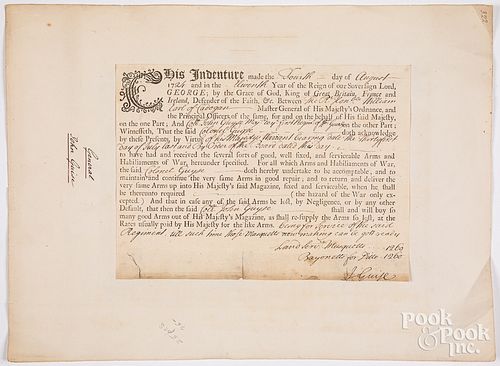 This Indenture made the Fourth day of August
1724 and in the Eleventh Year of the Reign of our Soveraign Lord,
GEORGE; by the Grace of God, King of Great Britain, France and
Ireland, Defender of the Faith, &c. Between the Rt. Honble. William
Earl of Cadogan Master General of His Majesty's Ordnance, and
the Principal Officers of the same, for and on the behalf of His said Majesty,
on the one Part; And Coll. John Guyse on the other Part;
Witnesseth, That the said Colonel Guyse doth acknowledge
by these Presents, by Virtue of his Majesty's Warrant bearing date the
day of July last and by Order of the Board
to have had and received the several sorts of good, well fixed, and serviceable Arms and
Habiliments of War, hereunder specified. For all which Arms and Habiliments of War,
the said Colonel Guyse doth hereby undertake to be accomptable, and to
maintain and continue the very same Arms in good repair; and to return and deliver the
very same Arms up into His Majesty's said Magazine, fixed and serviceable, when he shall
be thereunto required (the hazard of the War only ex-
cepted.) And that in case any of the said Arms be lost, by Negligence, or by any other
Default, that then the said Coll. John Guyse shall and will buy so
many good Arms out of His Majesty's Magazine, as shall re-supply the Arms so lost, at the
Rates usually paid by His Majesty for the like Arms. being for Service of the said
Regiment till such time those Musquets now making can be got ready
Land Servs. Musquets 1260
Bayonetts for Ditto 1260
J. Guise
General
John Guise
322
Pook &
Pook Inc.